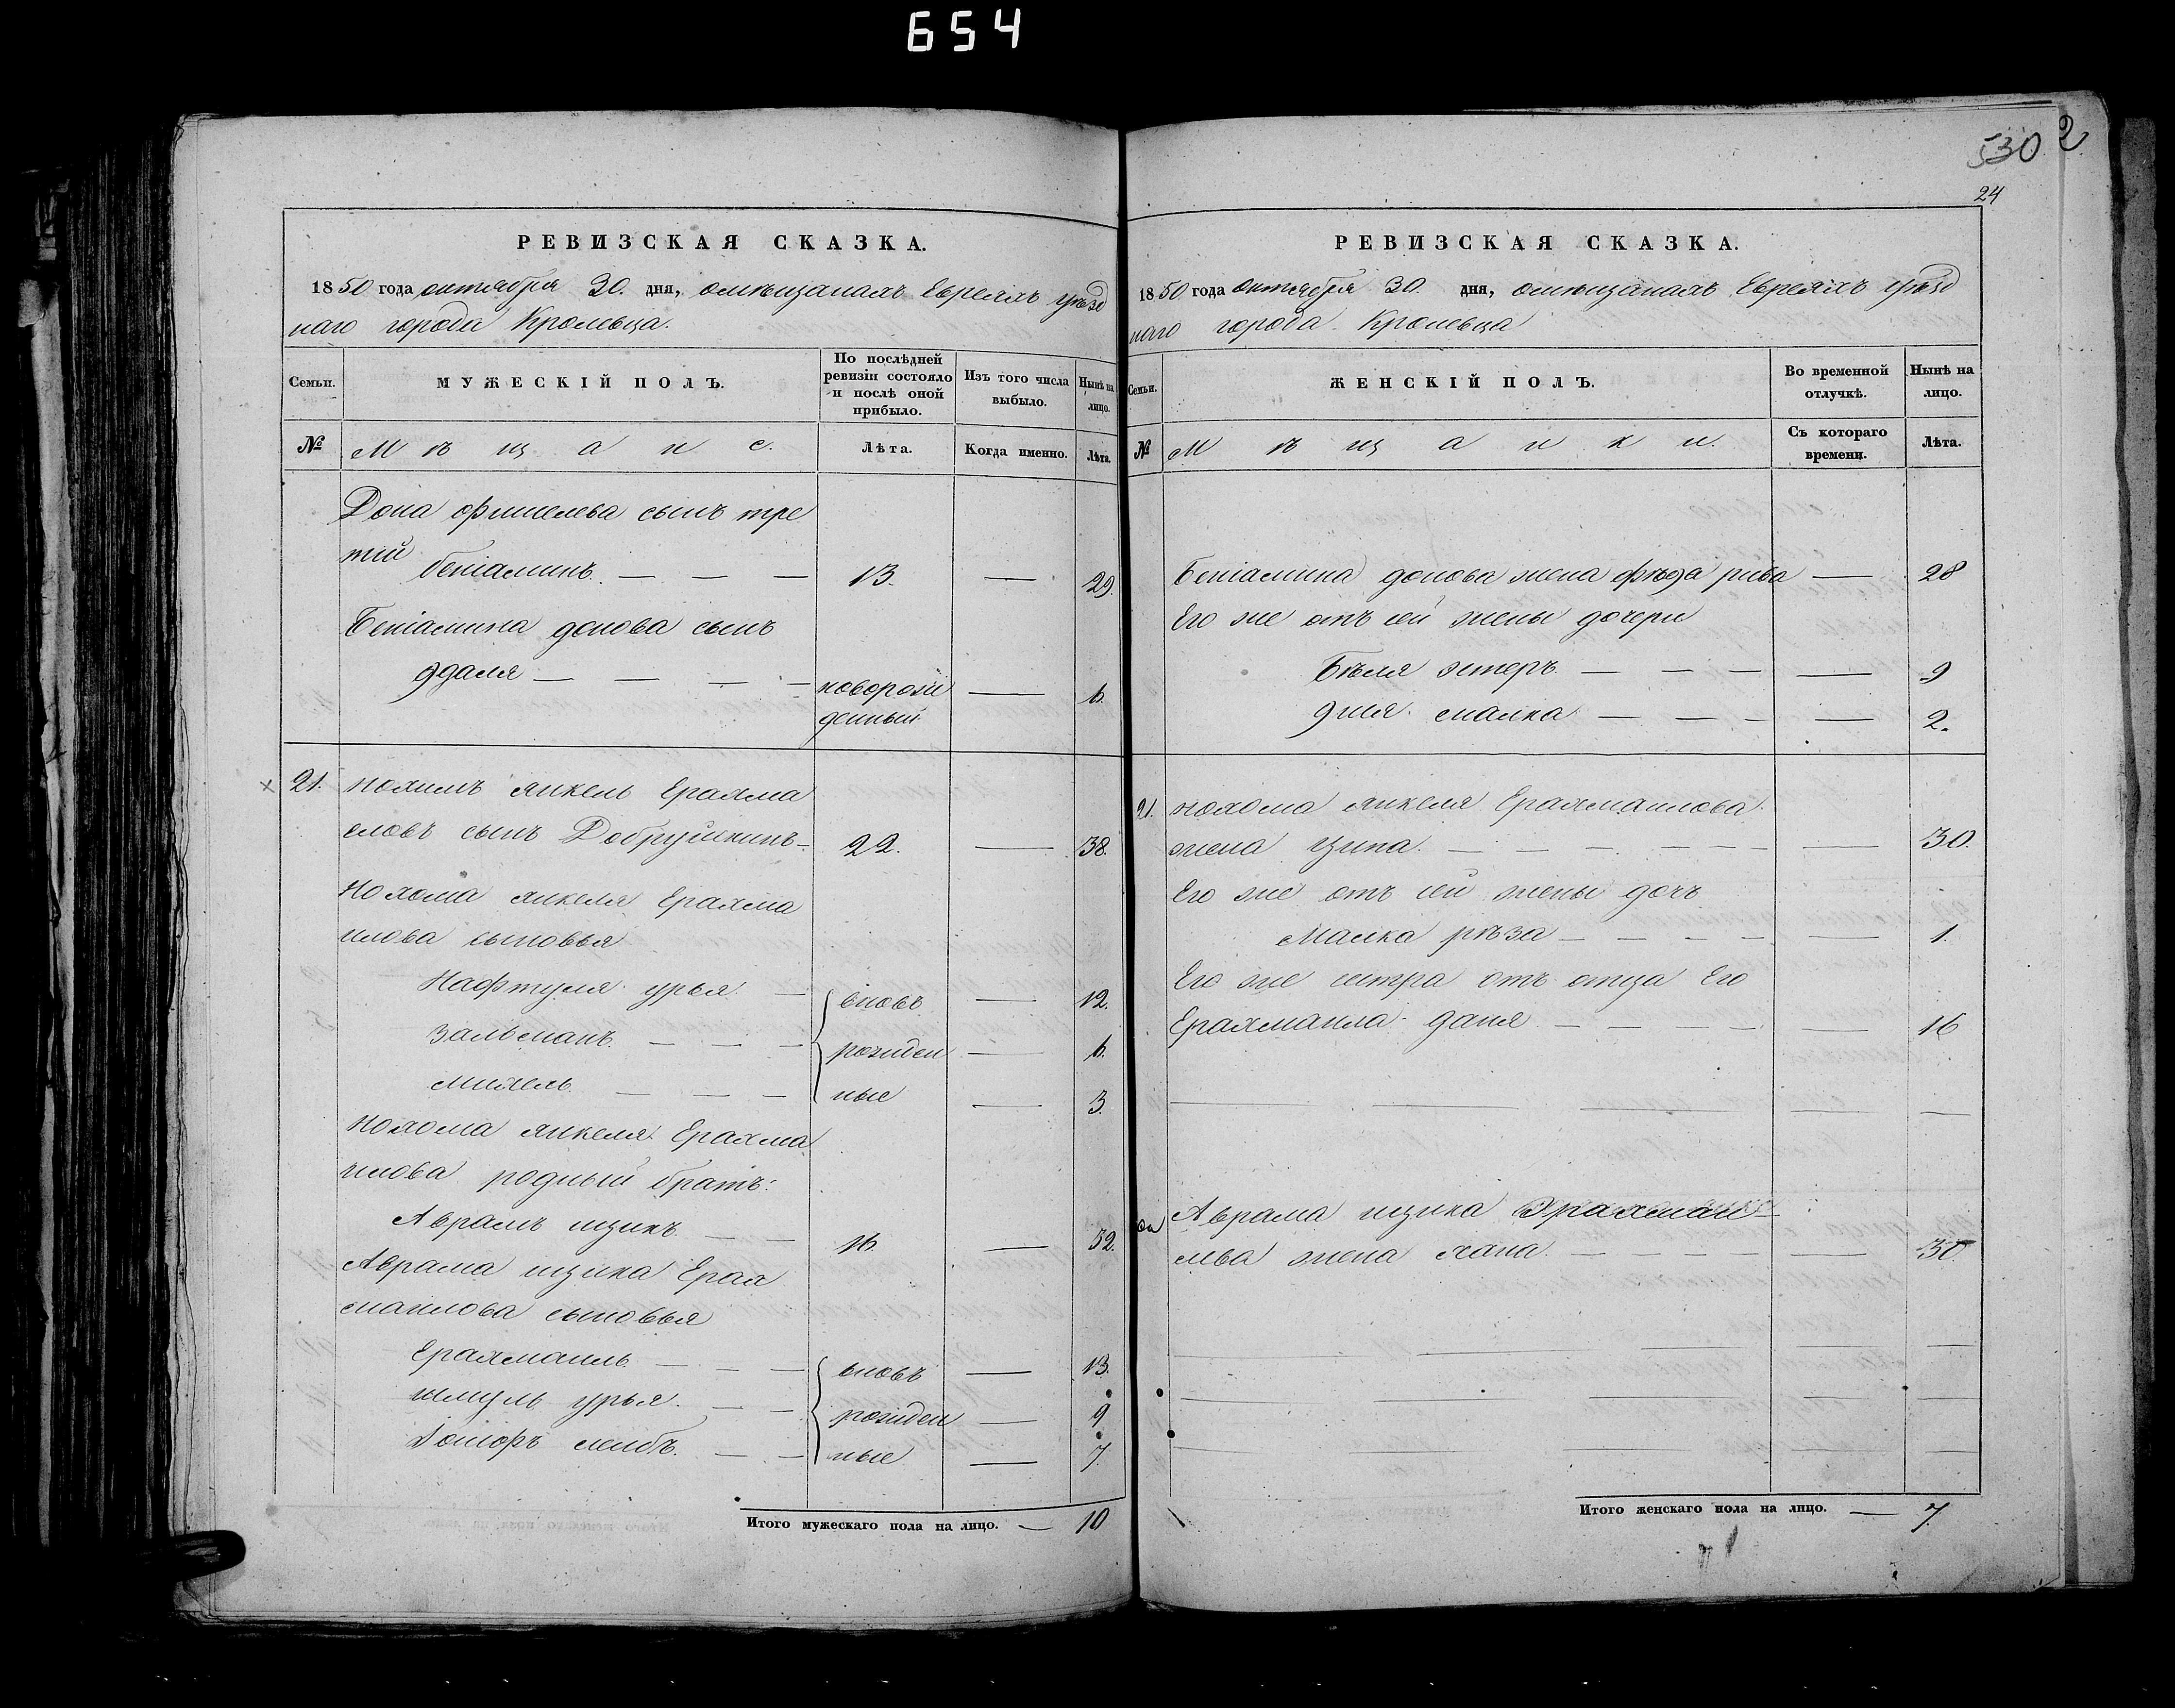 654
РЕВИЗСКАЯ СКАЗКА.
1850 года октября 30. дня, о мѣщанахъ Евреяхъ уѣзд
наго города Кролевца.
Семьи.
МУЖЕСКІЙ ПОЛЪ.
По послѣдней
ревизіи состояло
и послѣ оной
прибыло.
Изъ того числа
выбыло.
Нынѣ на
лицо.
№
Мѣщане.
Лѣта.
Когда именно.
Лѣта.
Дона Фишелева сынъ тре
тій
беніаминъ. — — — 13. — 29.
Беніамина донова сынъ
Ядаля — — — — новорож — 6.
денный.
21. Нохимъ Янкель Ерахма
еловъ сынъ Добрушкинъ — 22. — 38.
Нохома Янкеля Ерахма
илова сыновья
Нафтуля урья. — вновь — 12.
Зальманъ. — — — рожден — 6.
Михель. — — — ные — 3.
Нохома Янкеля Ерахма
илова родный братъ:
Аврамъ ицикъ. — — 16. — 32.
Аврама ицика Ерах
маилова сыновья
Ерахмаиль — — — вновь — 13.
шмуль урья. — — рожден — 9
лейбъ. — — ные — 7.
Итого мужескаго пола на лицо. — 10
530
2
24
РЕВИЗСКАЯ СКАЗКА.
1850 года Октября 30. дня, о мѣщанахъ Евреяхъ уѣзд
наго города Кролевца
Семьи.
ЖЕНСКІЙ ПОЛЪ.
Во временной
отлучкѣ.
Нынѣ на
лицо.
№
Мѣщанки.
Съ котораго
времени.
Лѣта.
Беніамина донова жена Фѣда рива — 28
Его же отъ сей жены дочери
Бѣля эстеръ. — — — — 9
малка — — — — 2.
21. Нохома Янкеля Ерахмаилова
жена Ципа. — — — — — — — 30.
Его же отъ сей жены дочь
Малка рѣза — — — — — 1.
Его же сестра отъ отца Его
Ерахмаила - даня — — — — 16
Аврама ицика Эрахмаи—
лва жена хана. — — — — — 30.
Итого женскаго пола на лицо. — 7.